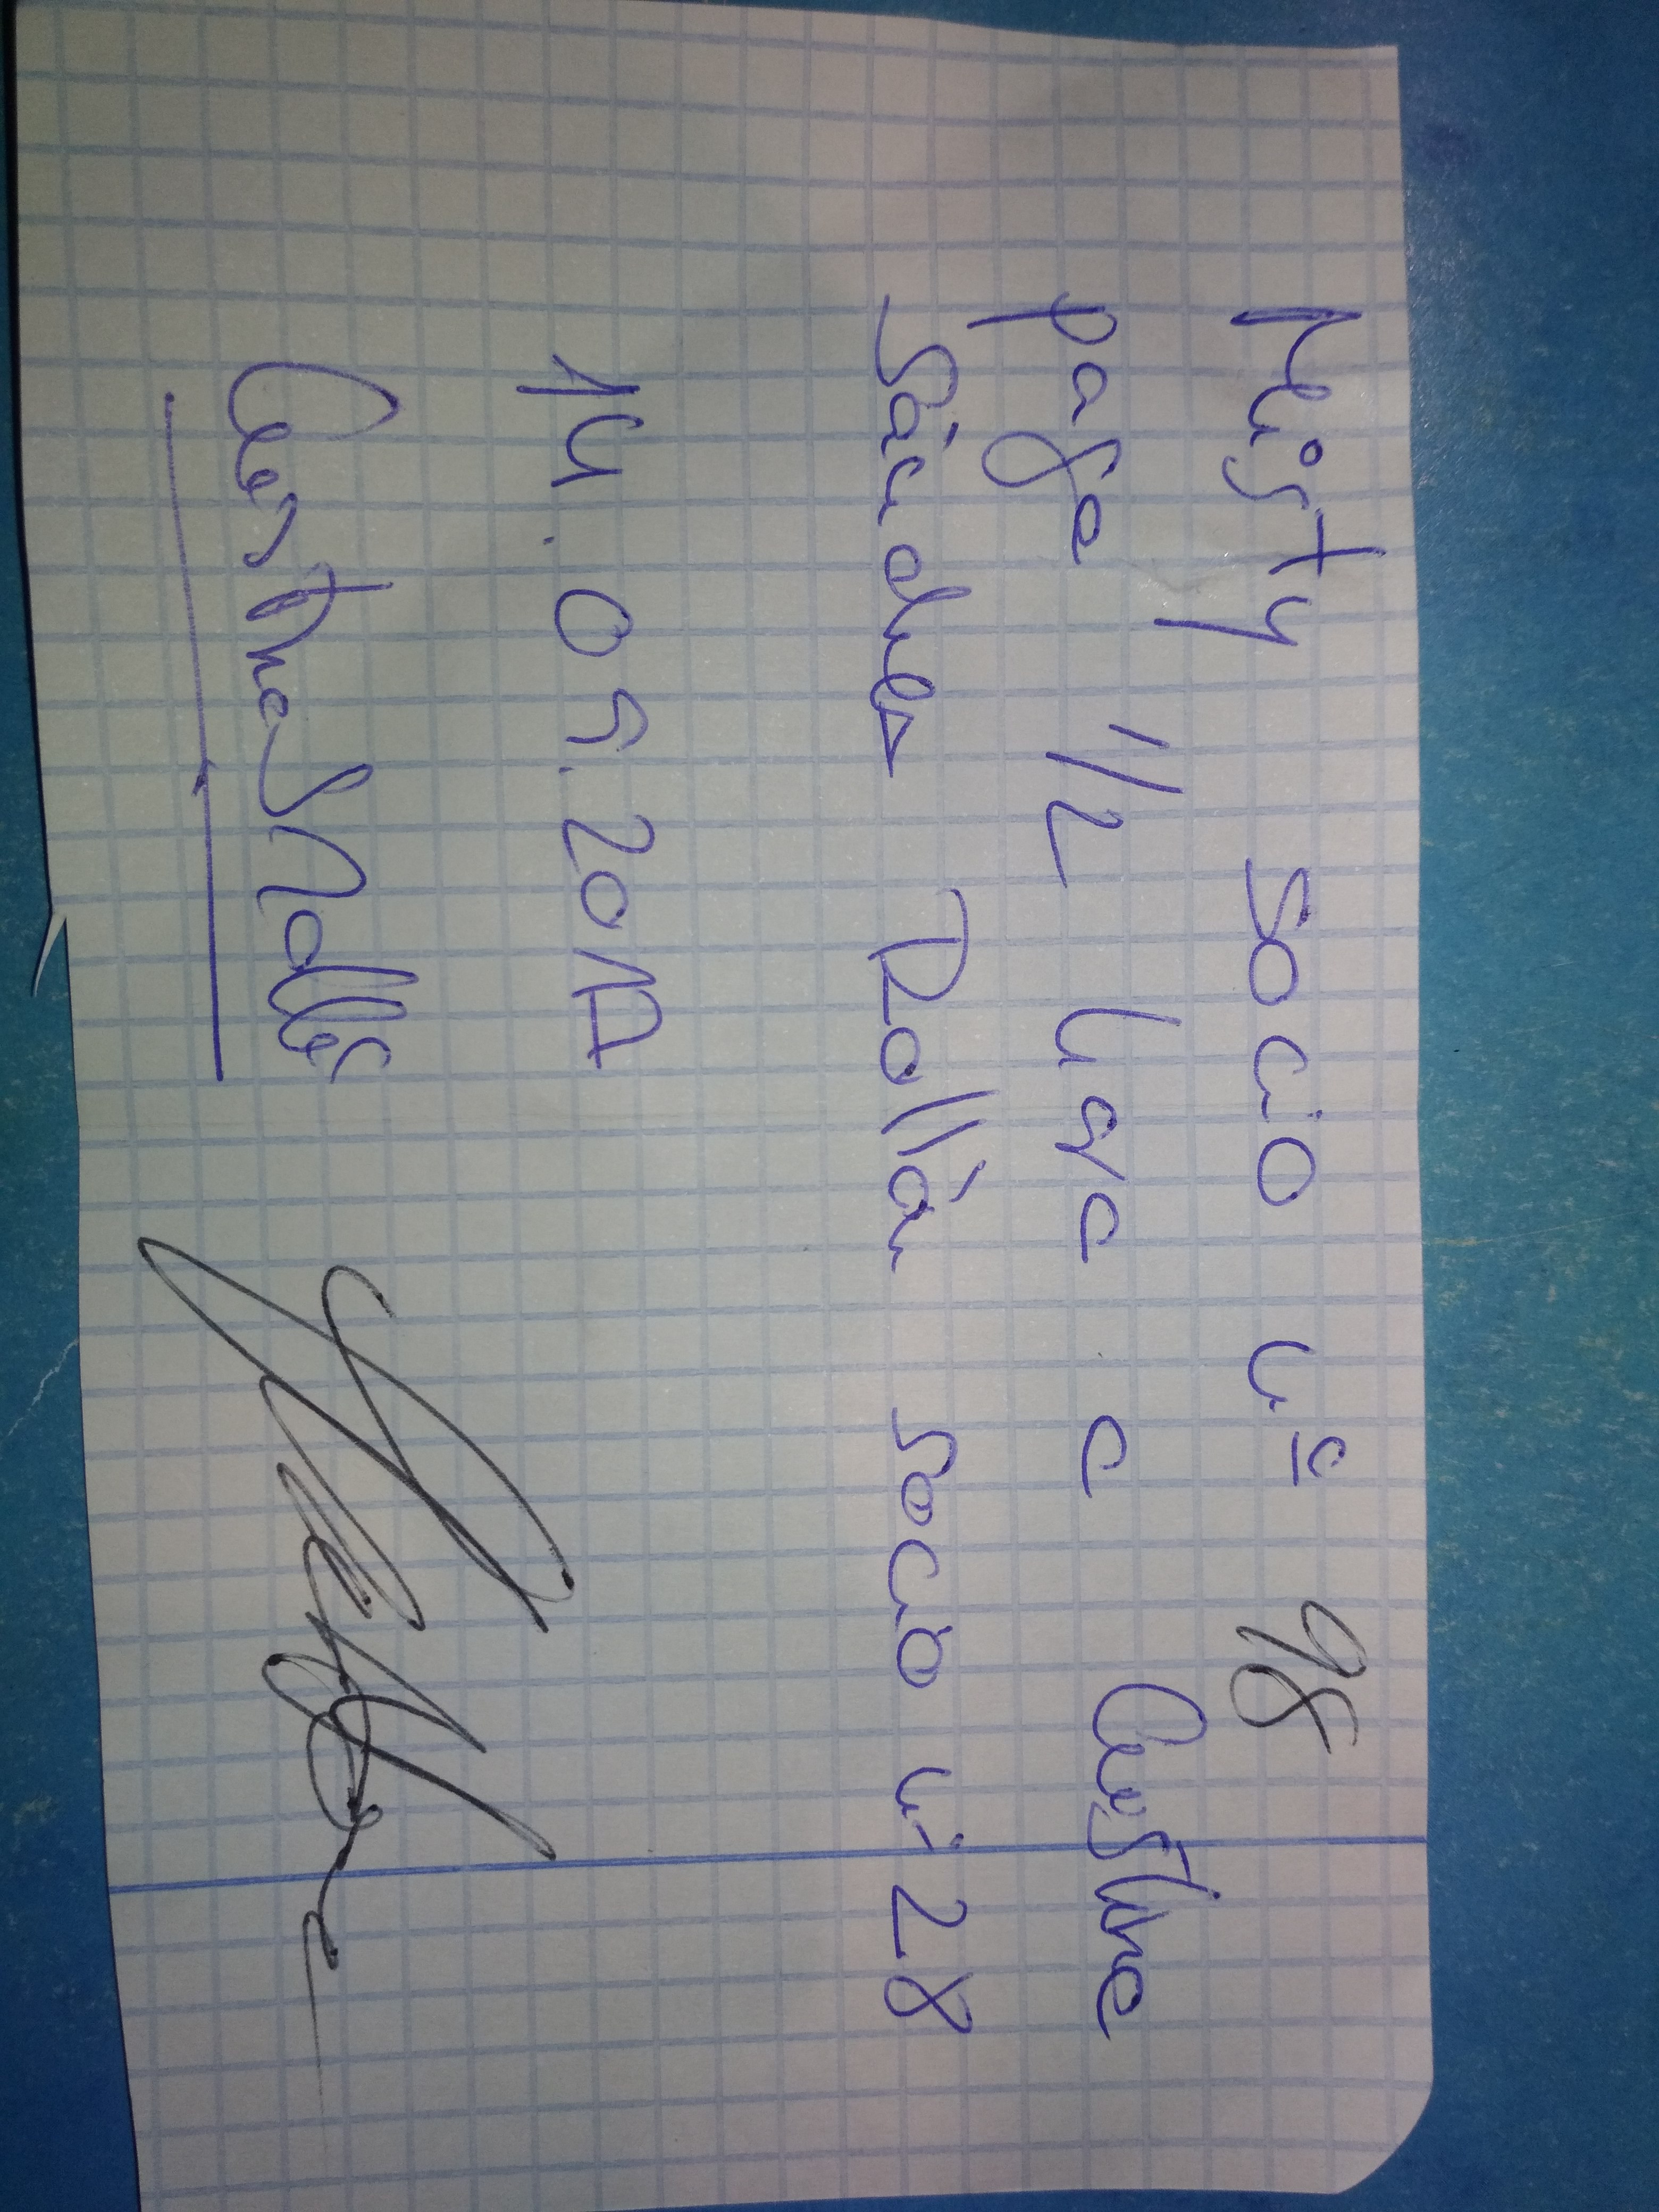 Misty socio nº 98
paga 1/2 hora a Cristina
Sánchez Rollán socio nº 28
14.09.2017
Cristina S Rollán